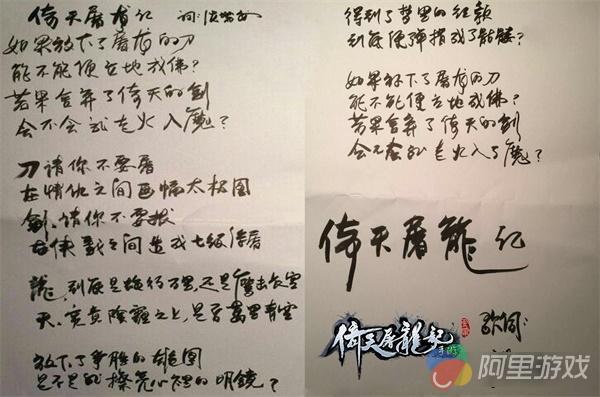 倚天屠龙记
如果放下了屠龙的刀
能不能便立地成佛？
若果舍弃了倚天的劍
会不会就走火入魔？
刀请你不要屠
在情仇之间画幅太极图
劍，请你不要拔
在侠影之间造成七级浮屠
龍，到底是
天，究竟陰霾之上，是否萬里青空
放下了争胜的雄图
是不是就擦亮心裡的明鏡？
得到了梦里的红颜
到底便弹指成了骷髅？
如果放下了屠龙的刀
能不能便立地成佛？
若果舍弃了倚天的劍
会不会就走火入了魔？
倚天屠龍记
歌词
倚天屠龍記
手游
阿里游戏